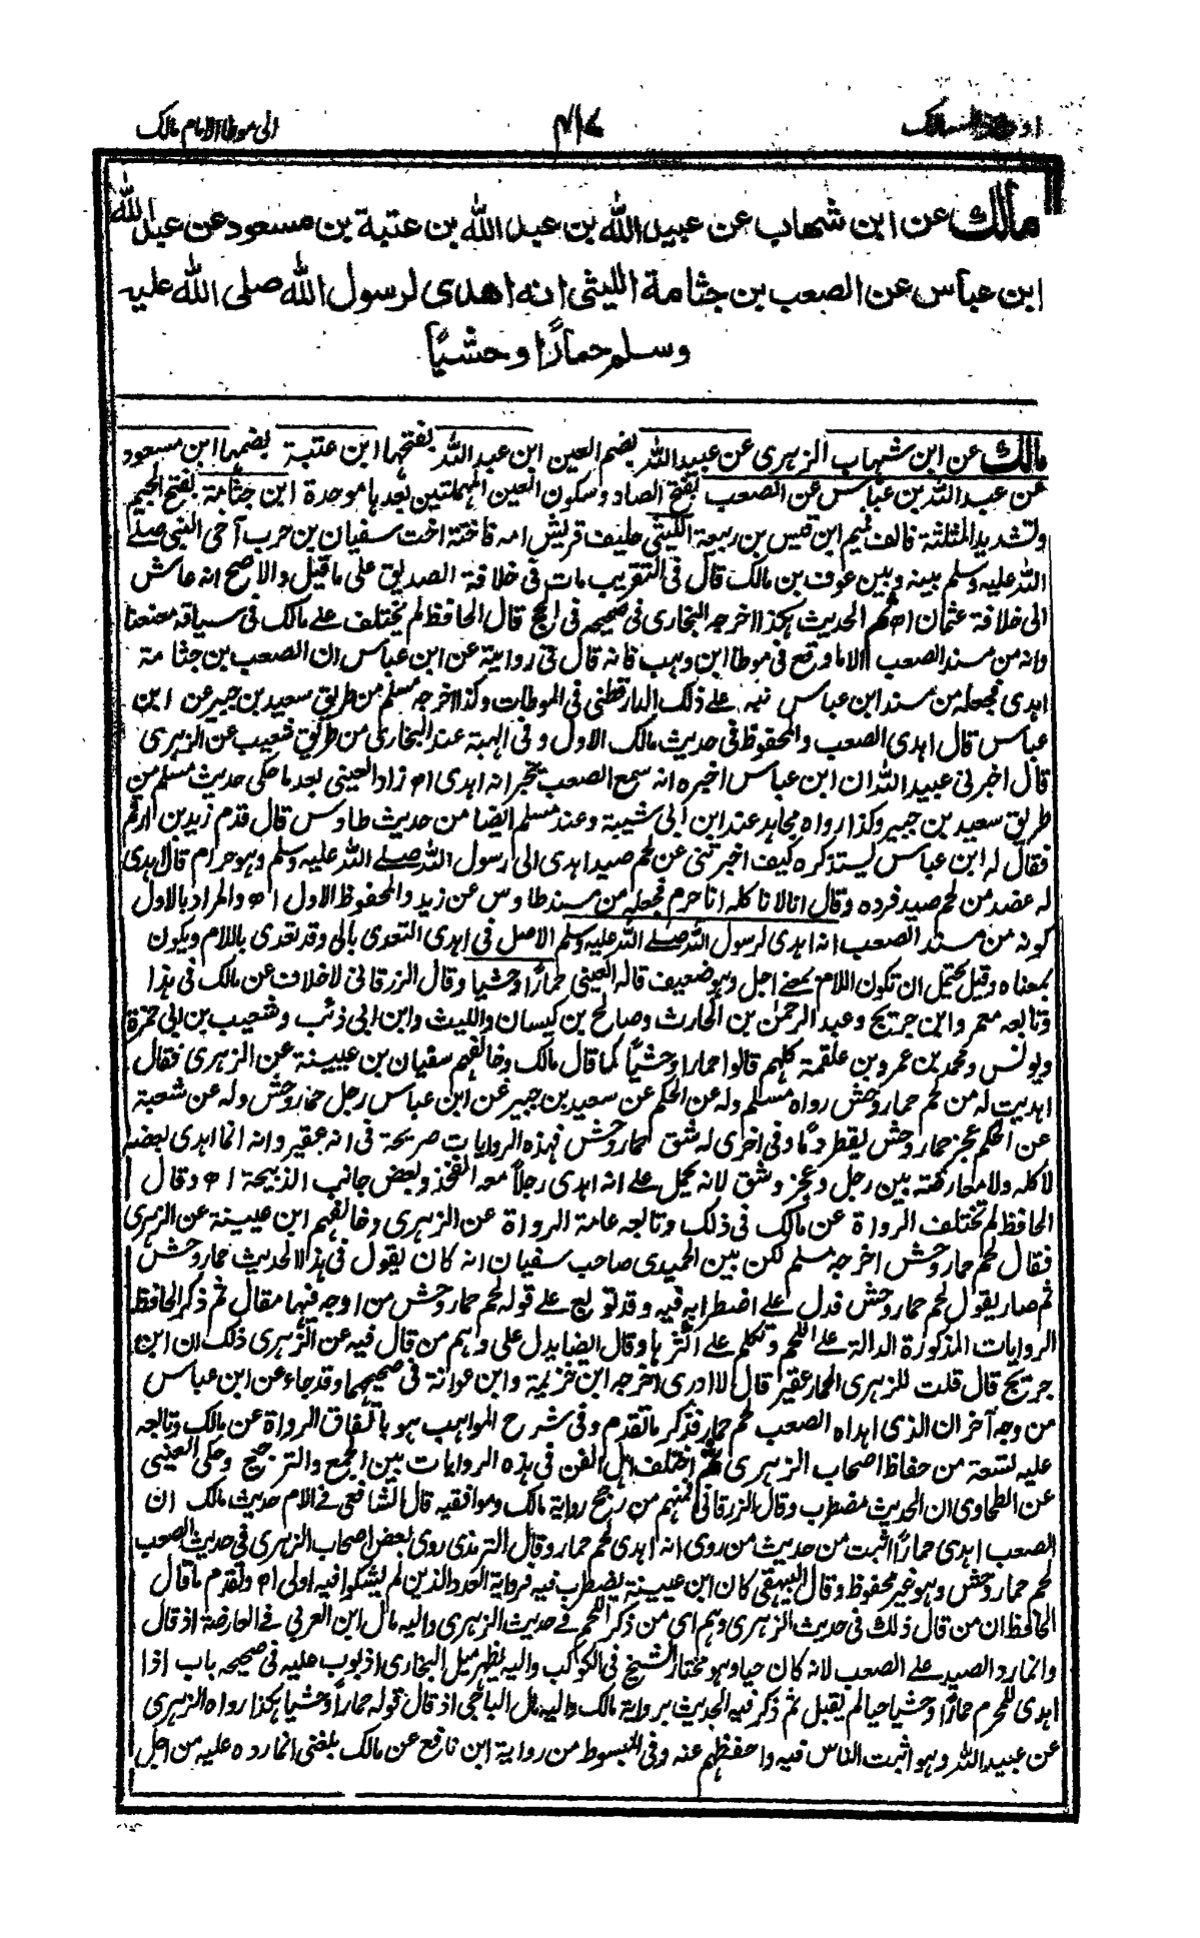 اوجز المسالك
٤١٧
الى موطا الامام مالك
مالك عن ابن شهاب عن عبيد الله بن عبد الله بن عتبة بن مسعود عن عبد الله
ابن عباس عن الصعب بن جثامة الليثي انه اهدى لرسول الله صلى الله عليه
وسلم حمارًا وحشيًا
مالك عن ابن شهاب الزهرى عن عبيد الله بضم العين ابن عبد الله بفتحها ابن عتبة بضمها ابن مسعود
عن عبد الله بن عباس عن الصعب بفتح الصاد وسكون العين المهملتين بعدها موحدة ابن جثامة بفتح الجيم
وتشديد المثلثة فالف فميم ابن قيس بن ربيعة الليثي حليف قريش امه فاختة اخت سفيان بن حرب آخى النبي صلى
الله عليه وسلم بينه وبين عوف بن مالك قال فى التقريب مات فى خلافة الصديق على ما قيل والاصح انه عاش
الى خلافة عثمان اه ثم الحديث هكذا اخرجه البخارى فى صحيحه فى الحج قال الحافظ لم يختلف على مالك فى سياقه معنعنا
وانه من مسند الصعب الا ما وقع فى موطا ابن وهب فانه قال فى روايته عن ابن عباس ان الصعب بن جثامة
اهدى فجعله من مسند ابن عباس نبه على ذلك الدارقطنى فى الموطات وكذا اخرجه مسلم من طريق سعيد بن جبير عن ابن
عباس قال اهدى الصعب والمحفوظ فى حديث مالك الاول وفى الهبة عند البخارى من طريق شعيب عن الزهرى
قال اخبرنى عبيد الله ان ابن عباس اخبره انه سمع الصعب يخبر انه اهدى اه زاد العينى بعد ما حكى حديث مسلم من
طريق سعيد بن جبير وكذا رواه مجاهد عند ابن ابى شيبة وعند مسلم ايضا من حديث طاوس قال قدم زيد بن ارقم
فقال له ابن عباس يستذكره كيف اخبرتنى عن لحم صيد اهدى الى رسول الله صلى الله عليه وسلم وهو حرام قال اهدى
له عضد من لحم صيد فرده وقال انا لا ناكله انا حرم فجعله من مسند طاوس عن زيد والمحفوظ الاول اه والمراد بالاول
كونه من مسند الصعب انه اهدى لرسول الله صلى الله عليه وسلم الاصل فى اهدى التعدى بالى وقد تعدى باللام ويكون
بمعناه وقيل يحتمل ان تكون اللام بمعنى اجل وهو ضعيف قاله العينى حمارًا وحشيا وقال الزرقانى لا خلاف عن مالك فى هذا
وتابعه معمر وابن جريج وعبد الرحمن بن الحارث وصالح بن كيسان والليث وابن ابى ذئب وشعيب بن ابى حمزة
ويونس ومحمد بن عمرو بن علقمة كلهم قالوا حمارا وحشيًا كما قال مالك وخالفهم سفيان بن عيينة عن الزهرى فقال
اهديت له من لحم حمار وحش رواه مسلم وله عن الحكم عن سعيد بن جبير عن ابن عباس رجل حمار وحش وله عن شعبة
عن الحكم عجز حمار وحش يقطر دمًا وفى اخرى له شق حمار وحش فهذه الروايات صريحة فى انه عقير وانه انما اهدى بعضه
لا كله ولا معارضة بين رجل وعجز وشق لانه يحمل على انه اهدى رجلًا معه الفخذ وبعض جانب الذبيحة اه وقال
الحافظ لم تختلف الرواة عن مالك فى ذلك وتابعه عامة الرواة عن الزهرى وخالفهم ابن عيينة عن الزهرى
فقال لحم حمار وحش اخرجه مسلم لكن بين الحميدى صاحب سفيان انه كان يقول فى هذا الحديث حمار وحش
ثم صار يقول لحم حمار وحش فدل على اضطرابه فيه وقد توبع على قوله لحم حمار وحش من اوجه فيها مقال ثم ذكر الحافظ
الروايات المذكورة الدالة على اللحم وتكلم على اكثرها وقال ايضا يدل على وهم من قال فيه عن الزهرى ذلك ان ابن
جريج قال قلت للزهرى الحمار عقير قال لا ادرى اخرجه ابن خزيمة وابن عوانة فى صحيحهما وقد جاء عن ابن عباس
من وجه آخر ان الذى اهداه الصعب لحم حمار فذكر ما تقدم وفى شرح المواهب هو باتفاق الرواة عن مالك وتابعه
عليه تسعة من حفاظ اصحاب الزهرى ثم اختلف اهل الفن فى هذه الروايات بين الجمع والترجيح وحكى العينى
عن الطحاوى ان الحديث مضطرب وقال الزرقانى فمنهم من رجح رواية مالك وموافقيه قال الشافعى فى الام حديث مالك ان
الصعب اهدى حمارًا اثبت من حديث من روى انه اهدى لحم حمار وقال الترمذى روى بعض اصحاب الزهرى فى حديث الصعب
لحم حمار وحش وهو غير محفوظ وقال البيهقى كان ابن عيينة يضطرب فيه فرواية العدد الذين لم يشكوا فيه اولى اه وتقدم ما قال
الحافظ ان من قال ذلك فى حديث الزهرى وهم اى من ذكر اللحم فى حديث الزهرى واليه مال ابن العربى فى العارضة اذ قال
وانما رد الصيد على الصعب لانه كان حيا وهو مختار الشيخ فى الكوكب واليه يظهر ميل البخارى اذ بوب عليه فى صحيحه باب اذا
اهدى للمحرم حمارًا وحشيا حيا لم يقبل ثم ذكر فيه الحديث برواية مالك واليه مال الباجى اذ قال قوله حمارًا وحشيا هكذا رواه الزهرى
عن عبيد الله وهو اثبت الناس فيه واحفظهم عنه وفى المبسوط من رواية ابن نافع عن مالك بلغنى انما رده عليه من اجل